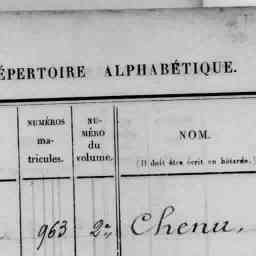 ÉPERTOIRE ALPHABÉTIQUE.
NUMÉROS
ma-
tricules.
NU-
MÉRO
du
volume.
NOM.
(Il doit être écrit en bâtarde.)
963 2e Chenu,